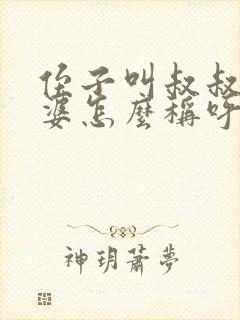 侄子叫叔叔
婆怎麼稱呼
神玥蕭夢